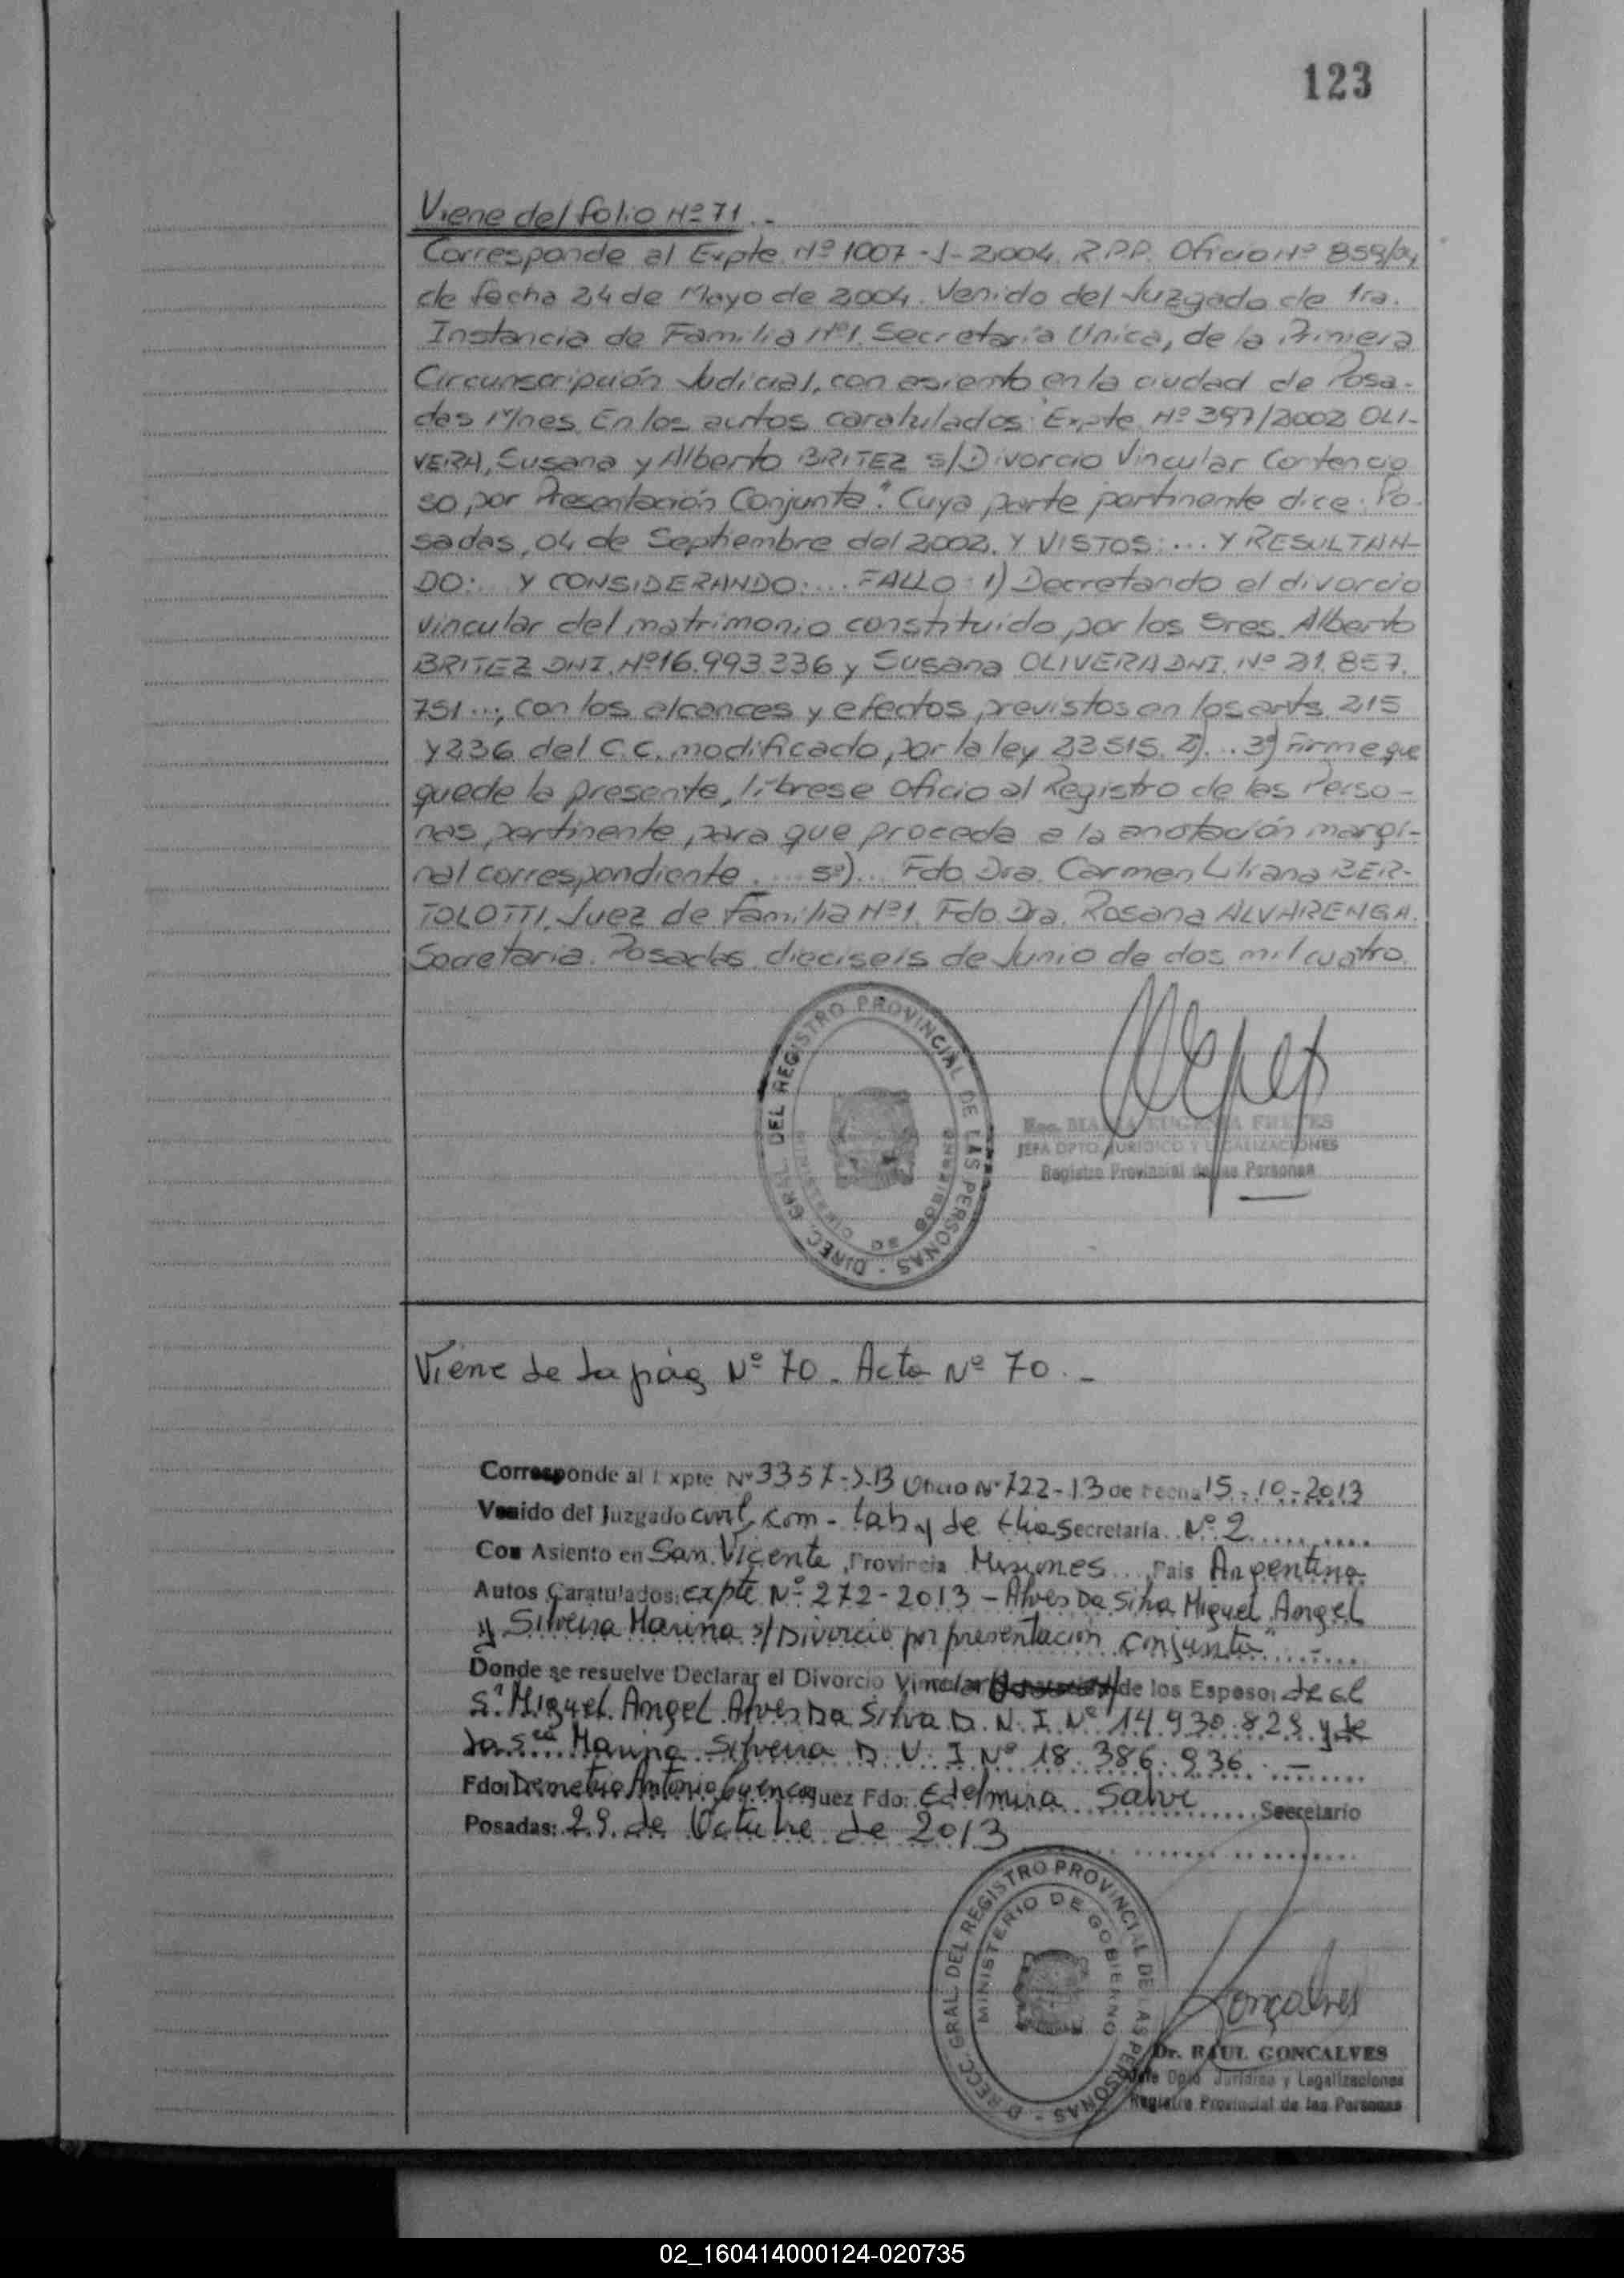 123
Viene del folio Nº 71.-
Corresponde al Expte. Nº 1007-J-2004. R.P.P. Oficio Nº 859/04
de fecha 24 de Mayo de 2004. Venido del Juzgado de 1ra.
Instancia de Familia Nº1. Secretaría Unica, de la Primera
Circunscripción Judicial, con asiento en la ciudad de Posa-
das Mnes. En los autos caratulados: "Expte. Nº 397/2002 OLI-
VERA, Susana y Alberto BRITEZ s/Divorcio Vincular Contencio
so por Presentación Conjunta". Cuya parte pertinente dice: Po-
sadas, 04 de Septiembre del 2002. Y VISTOS: ... Y RESULTAN-
DO: ... Y CONSIDERANDO: ... FALLO: 1) Decretando el divorcio
vincular del matrimonio constituido por los Sres. Alberto
BRITEZ DNI. Nº 16.993.336 y Susana OLIVERA DNI. Nº 21.857.
751 ..., con los alcances y efectos previstos en los arts. 215
y 236 del C.C. modificado por la ley 23515. 2)... 3º) Firme que
quede la presente, líbrese oficio al Registro de las Perso-
nas pertinente para que proceda a la anotación margi-
nal correspondiente. ... 5º)... Fdo. Dra. Carmen Liliana BER-
TOLOTTI, Juez de Familia Nº1. Fdo. Dra. Rosana ALVARENGA.
Secretaria. Posadas, dieciseis de Junio de dos mil cuatro.
DIREC. GRAL. DEL REGISTRO PROVINCIAL DE LAS PERSONAS -
MINISTERIO DE GOBIERNO
Esc. MARIA EUGENIA FRETES
JEFA DPTO. JURIDICO Y LEGALIZACIONES
Registro Provincial de las Personas
Viene de la pág Nº 70. Acta Nº 70.-
Corresponde al Expte Nº 3357-J-13 Oficio Nº 722-13 de Fecha 15-10-2013
Venido del Juzgado Civil, Com - Lab y de Flia Secretaría Nº 2
Con Asiento en San Vicente, Provincia Misiones País Argentina
Autos Caratulados: expte Nº 272-2013 - Alves Da Silva Miguel Angel
y Silveira Marina s/Divorcio por presentación Conjunta"
Donde se resuelve Declarar el Divorcio Vincular de los Esposos de el
Sr. Miguel Angel Alves Da Silva D.N.I. Nº 14.930.829 y de
la Sra Marina Silveira D.N.I Nº 18.386.936.-
Fdo: Demetrio Antonio Cuenca Juez Fdo: Edelmira Salvi Secretario
Posadas: 29 de Octubre de 2013
DIRECC. GRAL. DEL REGISTRO PROVINCIAL DE LAS PERSONAS -
MINISTERIO DE GOBIERNO
Gonçalves
Dr. RAUL GONCALVES
Jefe Dpto Jurídico y Legalizaciones
Registro Provincial de las Personas
02_160414000124-020735